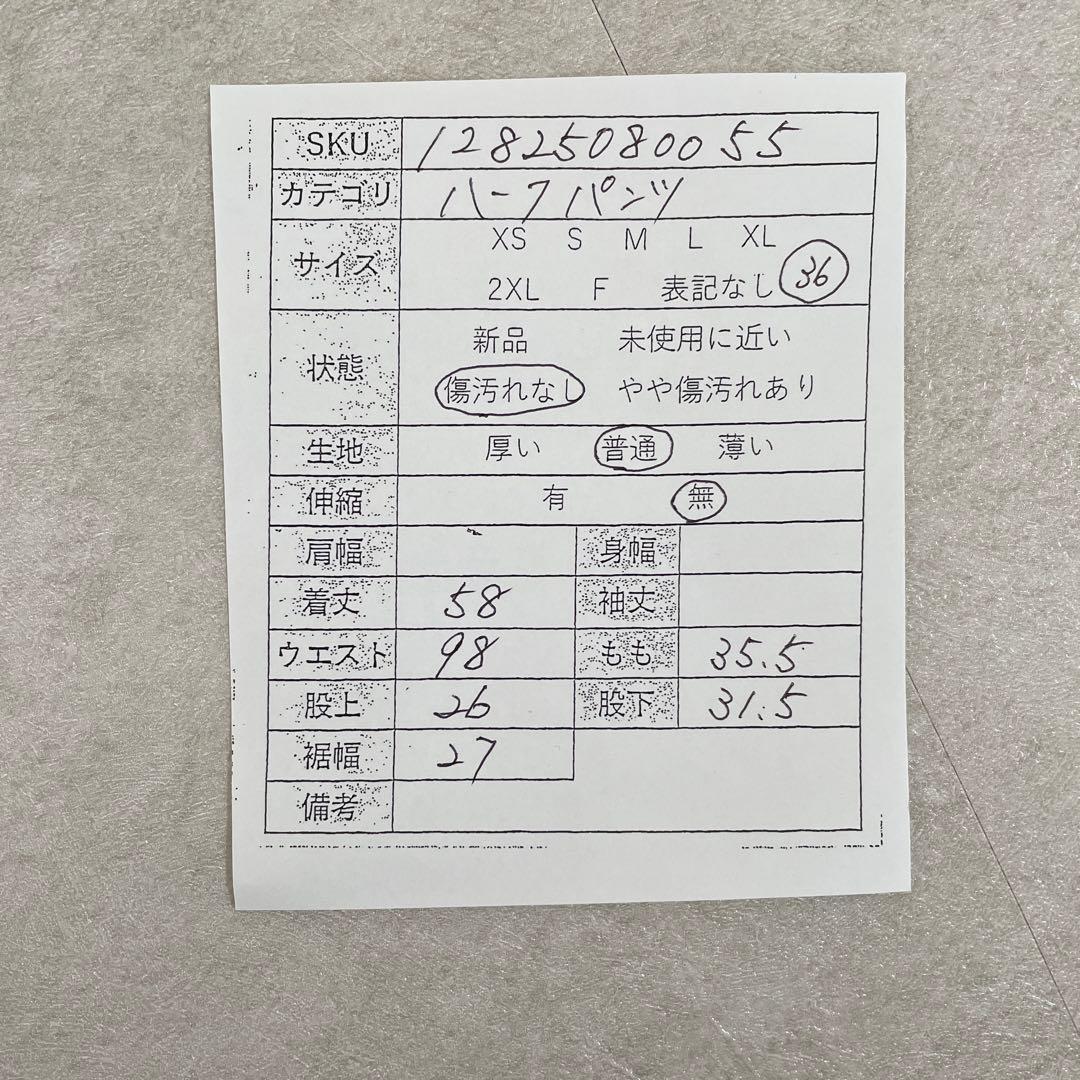 SKU 12825080055
カテゴリ ハーフパンツ
サイズ XS S M L XL
2XL F 表記なし 36
状態 新品 未使用に近い
傷汚れなし やや傷汚れあり
生地 厚い 普通 薄い
伸縮 有 無
肩幅 身幅
着丈 58 袖丈
ウエスト 98 もも 35.5
股上 26 股下 31.5
裾幅 27
備考